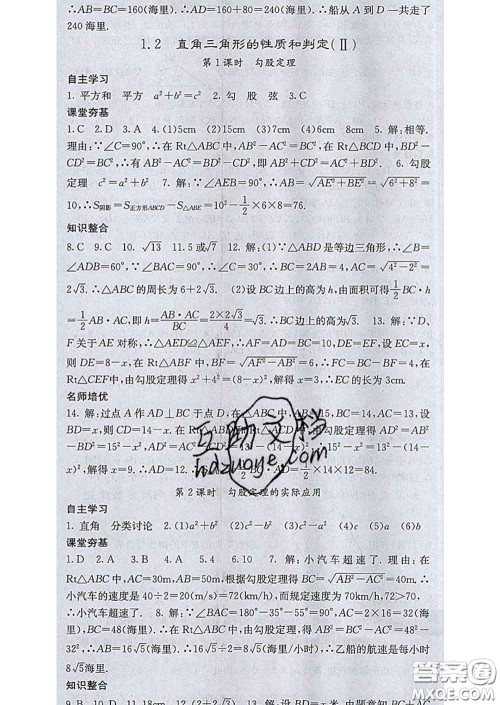 ∴AB=BC=160(海里).∴AD=160+80=240(海里).∴船从A到D一共走了
240海里.
1.2 直角三角形的性质和判定(Ⅱ)
第1课时 勾股定理
自主学习
1. 平方和 平方 a²+b²=c² 2. 勾 股 弦 3. C
课堂夯基
1. C 2. D 3. A 4. (1)5cm (2)15cm (3)7cm (4)6cm 5. 解:相等.
理由:∵∠C=90°,∴在Rt△ABC中,AB²-AC²=BC²,在Rt△BCD中,BD²-
CD²=BC²,∴有AB²-AC²=BD²-CD²,即AB²+CD²=AC²+BD². 6. 勾股
定理 c²=a²+b² 7. 解:∵∠AEB=90°,∴AB=√(AE²+BE²)=√(6²+8²)=
10,∴S阴影=S正方形ABCD-S△ABE=10²-1/2×6×8=76.
知识整合
8. C 9. C 10. √13 11. 5或√7 12. 解:(1)∵△ABD是等边三角形,∴∠B=
∠ADB=60°,∵∠BAC=90°,∴∠C=30°,∴BC=2AB=4,∴AC=√(4²-2²)=
2√3.∴△ABC的周长为6+2√3. (2)设BC边上的高为h,由面积可得1/2BC·h
=1/2AB·AC,即h=AB·AC/BC=2×2√3/4=√3.∴BC边上的高为√3. 13. 解:∵D、
F关于AE对称,∴△AED≌△AEF,∴AF=AD=BC=10,DE=EF,设EC=x,
则DE=8-x,在Rt△ABF中,BF=√(AF²-AB²)=6,∴FC=BC-BF=4.在
Rt△CEF中,由勾股定理得x²+4²=(8-x)².解得x=3,∴EC的长为3cm.
名师培优
14. 解:过点A作AD⊥BC于点D,在△ABC中,AB=15,BC=14,AC=13,设
BD=x,则CD=14-x.在Rt△ABD与Rt△ACD中,由勾股定理得AD²=AB²
-BD²=15²-x²,AD²=AC²-CD²=13²-(14-x)²,∴15²-x²=13²-(14-x)²,解
得x=9.∴AD=12.∴S△ABC=1/2BC·AD=1/2×14×12=84.
第2课时 勾股定理的实际应用
自主学习
1. 直角 分类讨论 2. (1)a²+b² (2)c²-b² (3)c²-a² (4)c (5)a (6)b
课堂夯基
1. D 2. D 3. A 4. B 5. 4 6. 10 7. 解:小汽车超速了. 理由:在
Rt△ABC中,AC=30m,AB=50m,根据勾股定理得BC=√(AB²-AC²)=40m.∴小
汽车的速度是40÷2=20(m/s)=72(km/h),而规定速度为70km/h,72>70,
∴小汽车超速了. 8. 解:∵∠BAC=180°-35°-55°=90°,AC=2×16=32(海
里),BC=48(海里),∴在Rt△ABC中,由勾股定理得AB²=BC²-AC²=48²-
32²,∴AB=16√5(海里).∴16√5÷2=8√5(海里/小时),∴乙船的航速是每小时
8√5海里.
知识整合
互助文档
hdzuoye.com
答案圈
MXQE.COM